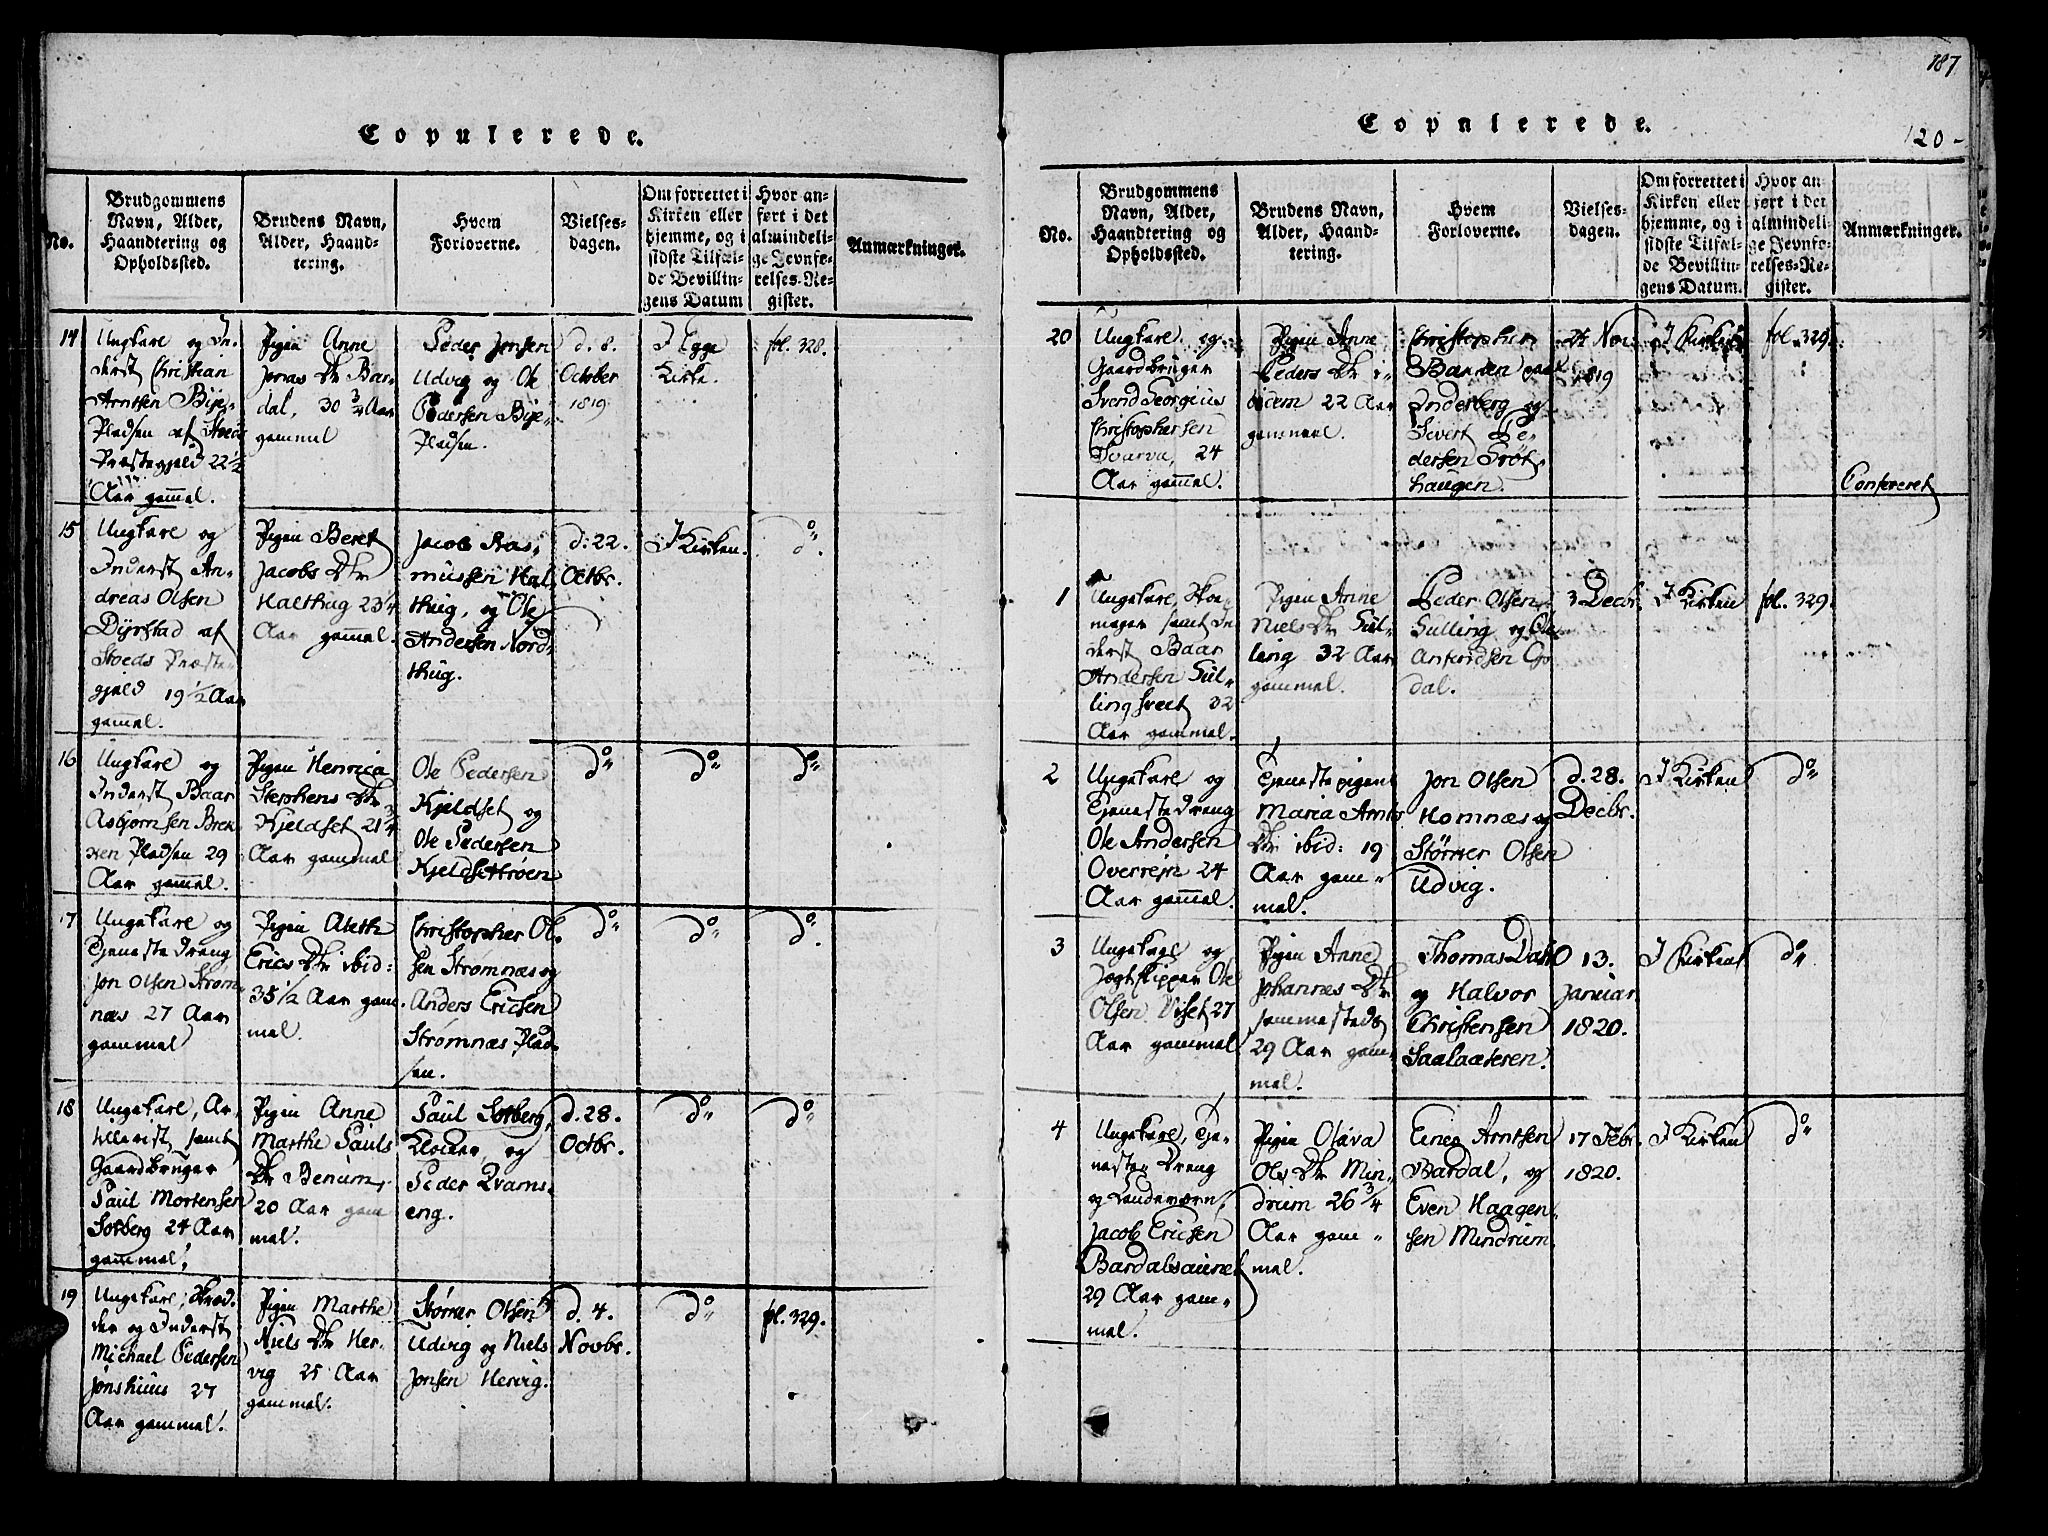 187
120-
Copulerede.
No.
Brudgommens Navn, Alder, Haandtering og Opholdssted.
Brudens Navn, Alder, Haandtering.
Hvem Forloverne.
Vielsesdagen.
Om forrettet i Kirken eller hjemme, og i sidste Tilfælde Bevillingens Datum
Hvor anført i det almindelige Jevnførelses-Register.
Anmærkninger.
14
Ungkarl og In-
derst Christian
Arntsen Bye-
Pladsen af Stoeds
Præstegjeld 22½
Aar gam̄el.
Pigen Anne
Jonas Dtr Bar-
dal, 30¾ Aar
gammel
Peder Jonsen
Udvig og Ole
Pedersen Bye-
Pladsen.
d. 8.
October
1819
I Egge
Kirke.
fol. 328.
15
Ungkarl og
Inderst An-
dreas Olsen
Dyrstad af
Stoeds Præste-
gjeld 19½ Aar
gam̄el.
Pigen Beret
Jacobs Dtr
Halthug 23¼
Aar gam̄el.
Jacob Ras-
mussen Hal-
thug, og Ole
Andersen Nord-
thug.
d: 22.
Octbr.
I Kirken.
do.
16
Ungkarl og
Inderst Baar
Asbjørnsen Brek-
ken Pladsen 29
Aar gam̄el.
Pigen Henrica
Stephens Dtr
Kjeldset 21¾
Aar gammel
Ole Pedersen
Kjeldset og
Ole Pedersen
Kjeldsettrøen
do
do
do
17
Ungekarl og
Tjenestedreng
Jon Olsen Strøm-
næs 27 Aar
gammel
Pigen Aleth
Erics Dtr ibid:
35½ Aar gam-
mel.
Christopher Ol-
sen Strømnæs og
Anders Ericsen
Strømnæs Plad-
sen.
do
do
do.
18
Ungekarl, Ar-
tillerist samt
Gaardbruger
Paul Mortensen
Solberg 24 Aar
gam̄mel.
Pigen Anne
Marthe Pauls
Dtr Benum,
20 Aar gam
mel.
Paul Solberg,
Klokker, og
Peder Qvams-
eng.
d. 28.
Octbr.
do
do
19
Ungekarl, Skræd-
der og Inderst
Michael Pedersen
Jonshuus 27
Aar gammel.
Pigen Marthe
Niels Dtr Her-
vig 25 Aar
gammel.
Størker Olsen
Udvig og Niels
Jonsen Hervig.
d. 4.
Novbr.
do
fol. 329.
Copulerede.
No.
Brudgommens Navn, Alder, Haandtering og Opholdssted.
Brudens Navn, Alder, Haandtering.
Hvem Forloverne.
Vielsesdagen.
Om forrettet i Kirken eller hjemme, og i sidste Tilfælde Bevillingens Datum.
Hvor anført i det almindelige Jevnførelses-Register.
Anmærkninger.
20
Ungkarl og
Gaardbruger
Svend Georgius
Christophersen
Dvarva, 24
Aar gam̄el.
Pigen Anne
Peders Dtr
22 Aar
gammel.
Christopher
Inderberg og
Sivert Pe-
dersen
haugen.
Nov
1819
I Kirken
fol. 329.
Confereret
1
Ungekarl, Skoe-
mager samt In-
derst Baar
Andersen Sul-
ling 32
Aar gammel.
Pigen Anne
Niels Dtr Sul-
ling 32 Aar
gammel.
Peder Olsen
Sulling og Ole
Go-
dal.
3 Decbr.
I Kirken
fol. 329.
2
Ungekarl og
Tjenestedreng
Ole Andersen
Overrejn 24
Aar gam̄mel.
Tjenestepigen
Maria Arnts
Dtr ibid: 19
Aar gam-
mel.
Jon Olsen
Homnæs og
Størker Olsen
Udvig.
d. 28.
Decbr.
I Kirken
do
3
Ungekarl og
Jægtskipper Ole
Olsen Viset 27
Aar gammel
Pigen Anne
Johannes Dtr
sammesteds
29 Aar gam-
mel.
Thomas Dahl
og Halvor
Christensen
Saalaateren.
13.
Januar
1820.
I Kirken
do.
4
Ungekarl, Tje-
nestedreng
og Landeværn,
Jacob Ericsen
Bardalsaunet
29 Aar gam-
mel.
Pigen Olava
Ols Dtr Min-
drum 26¾
Aar gam-
mel.
Einer Arntsen
Bardal, og
Even Haagen-
sen Mindrum.
17 Febr.
1820.
I Kirken
do